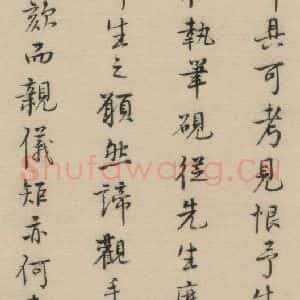 具可考見恨予生
執筆硯從先生
生之願然諦觀手
顏而親儀矩亦何
Shufawang.cn